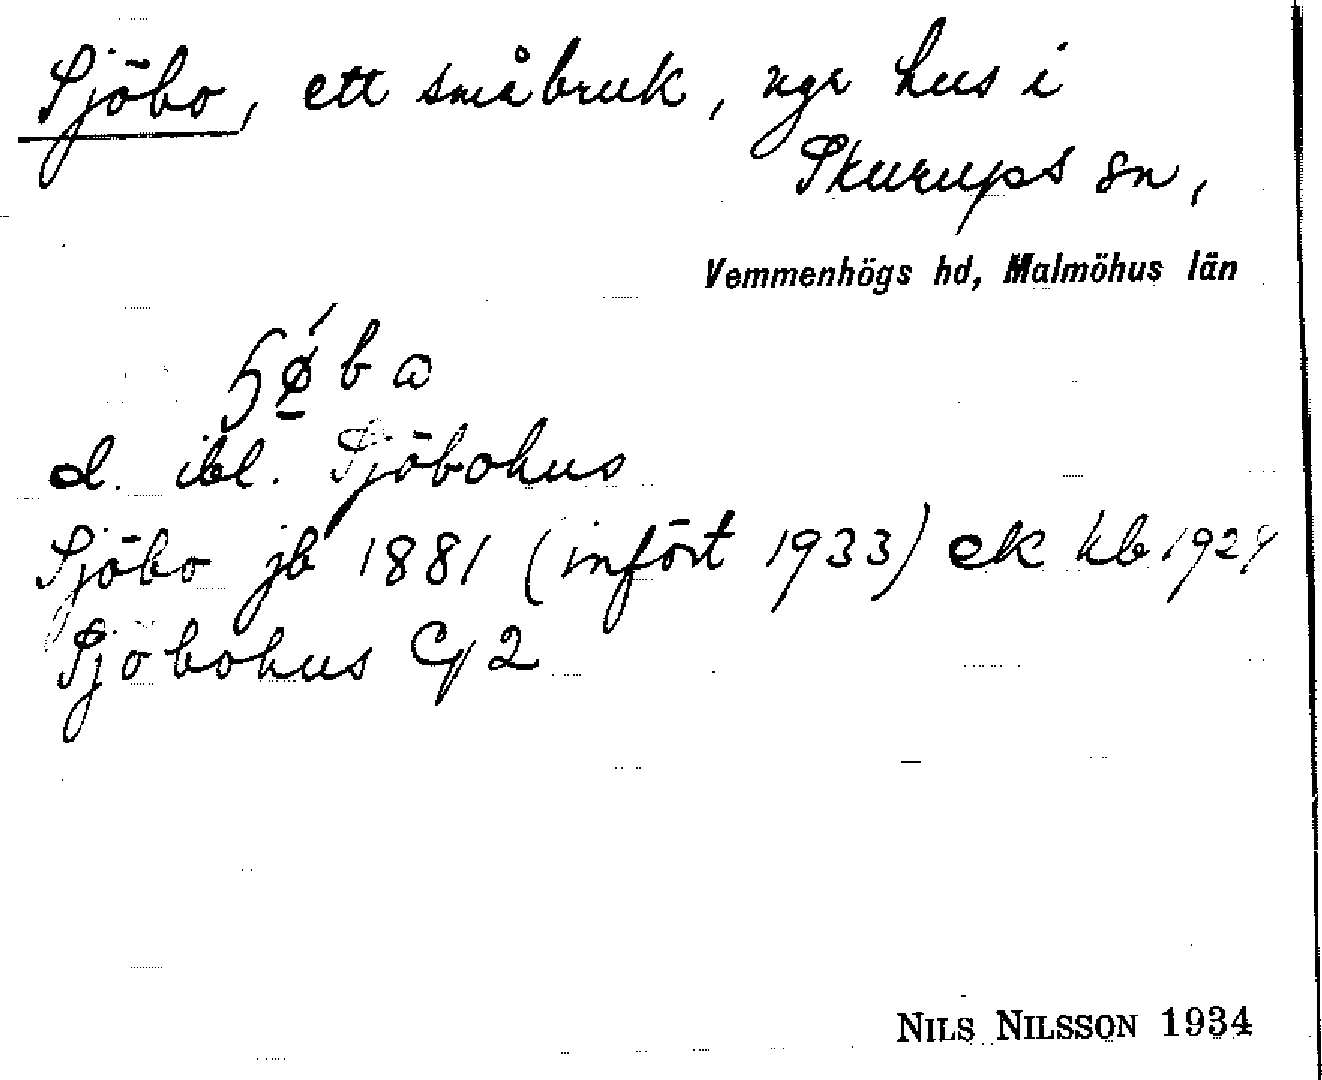 Sjöbo, ett småbruk, ngr hus i
Skurups sn,
Vemmenhögs hd, Malmöhus län
d. ibl. Sjöbohus
Sjöbo jb 1881 (infört 1933) ek kb 1924
Sjöbohus GJ 2
NILS NILSSON 1934